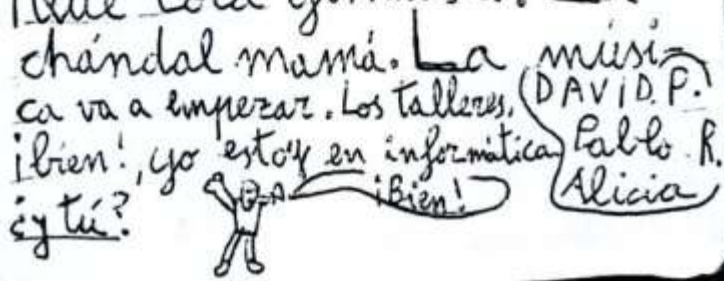 chándal mamá. La músi-
ca va a empezar. Los talleres,
¡bien!, yo estoy en informática
¿y tú?
¡Bien!
DAVID. P.
Pablo R.
Alicia